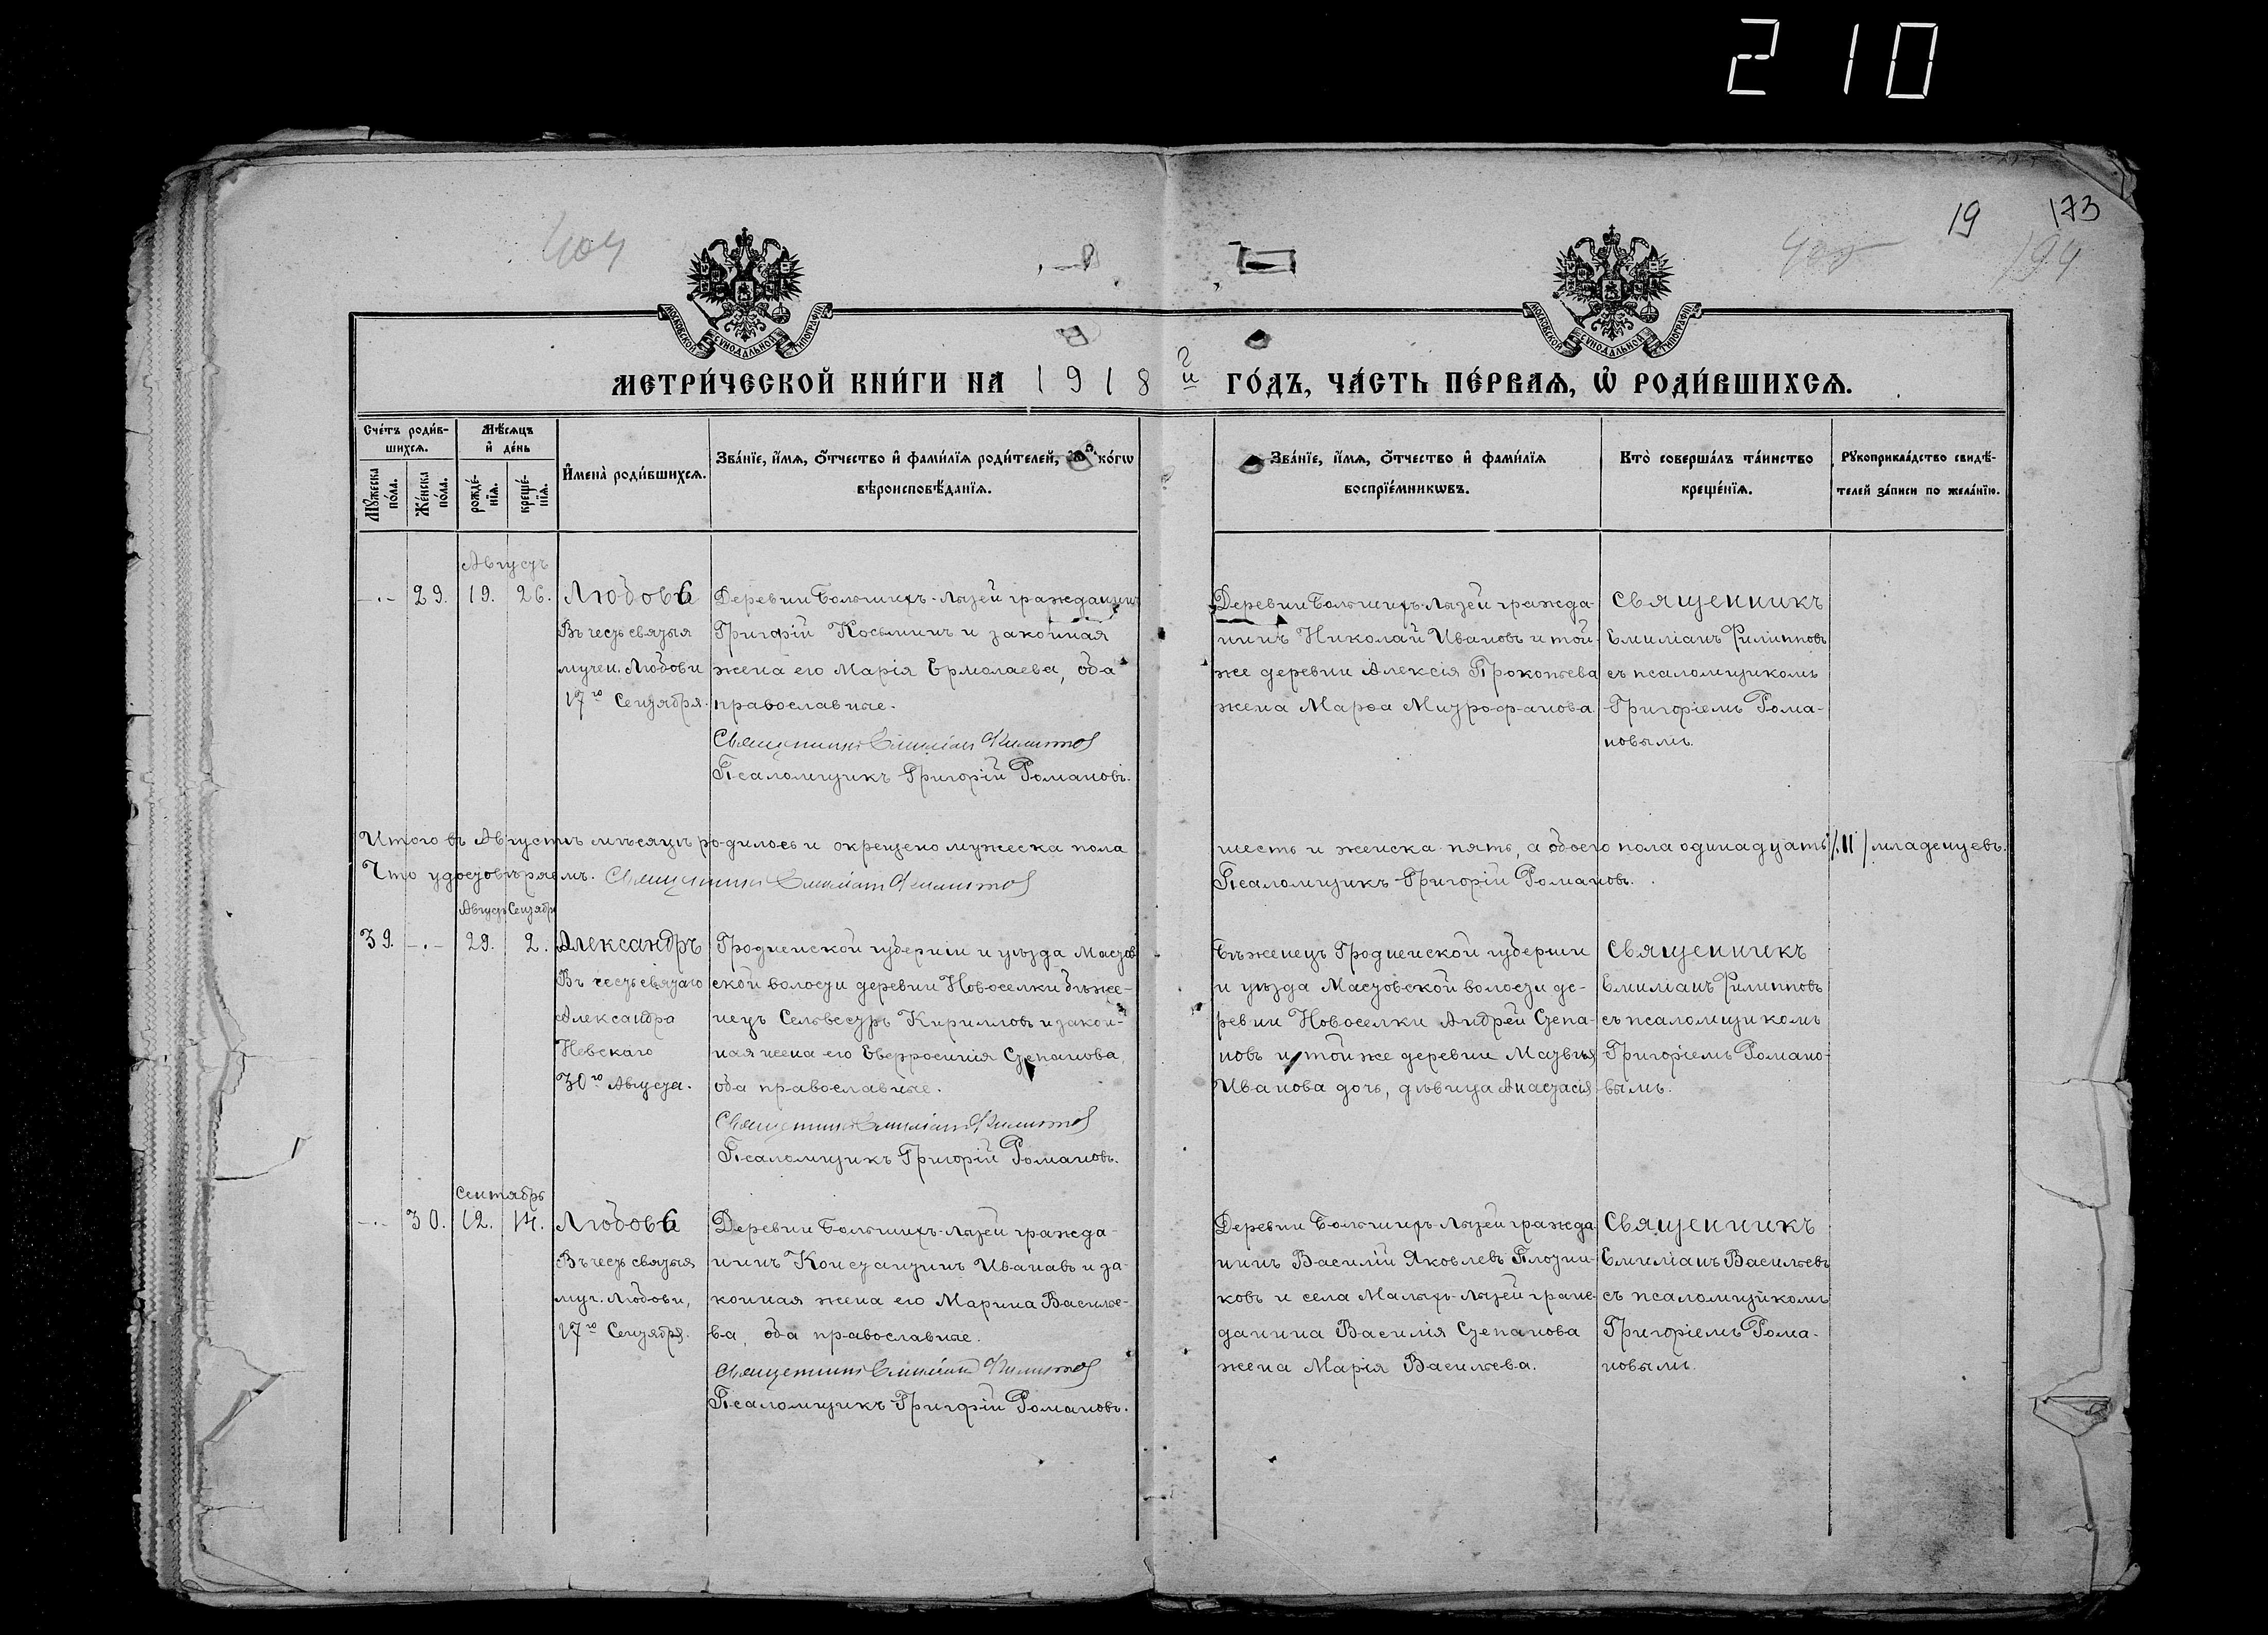 210
19 173
404 405 194
МОСКОВСКОЙ СѴНОДАЛЬНОЙ ТИПОГРАФІИ
МОСКОВСКОЙ СѴНОДАЛЬНОЙ ТИПОГРАФІИ
МЕТРИ́ЧЕСКОЙ КНИ́ГИ НА 1918й ГО́ДЪ, ЧА́СТЬ ПЕ́РВАѦ, Ѡ҆ РОДИ́ВШИХСѦ.
Сче́тъ роди́в-
шихсѧ.
Мѣ́сѧцъ
и҆ де́нь
Мꙋ́жеска
по́ла.
Же́нска
по́ла.
рожде́-
нїѧ.
креще́-
нїѧ.
И҆мена̀ роди́вшихсѧ.
Зва́нїе, и҆́мѧ, ѻ҆́тчество и҆ фами́лїѧ роди́телей, и҆ ко́гѡ
вѣроисповѣ́данїѧ.
Зва́нїе, и҆́мѧ, ѻ҆́тчество и҆ фами́лїѧ
воспрїе́мникѡвъ.
Кто̀ соверша́лъ та́инство
креще́нїѧ.
Рꙋкоприкла́дство свидѣ́-
телей за́писи по жела́нїю.
Августъ
-.- 29. 19. 26.
Любовь
Въ честь святыя
мучен. Любови
17го Сентября.
Деревни Большихъ-Лызей гражданинъ
Григорій Косьминъ и законная
жена его Марія Ермолаева, оба
православные.
Священникъ Емиліанъ Филипповъ
Псаломщикъ Григорій Романовъ.
Деревни Большихъ-Лызей гражда-
нинъ Николай Ивановъ и той-
же деревни Алексія Прокопьева
жена Марѳа Митрофанова.
Священникъ
Емиліанъ Филипповъ
съ псаломщикомъ
Григоріемъ Рома-
новымъ.
Итого въ Августѣ мѣсяцѣ родилось и окрещено мужеска пола шесть и женска пять, а обоего пола одинадцать /11/ младенцевъ.
Что удостовѣряемъ. Священникъ Емиліанъ Филипповъ Псаломщикъ Григорій Романовъ.
Августъ Сентябрь
39. -.- 29. 2.
Александръ
Въ честь святаго
Александра
Невскаго
30го Августа.
Гродненской губерніи и уѣзда Мастов-
ской волости деревни Новоселки бѣже-
нецъ Сельвестръ Кирилловъ и закон-
ная жена его Евфросинія Степанова,
оба православные.
Священникъ Емиліанъ Филипповъ
Псаломщикъ Григорій Романовъ.
Бѣженецъ Гродненской губерніи
и уѣзда Мастовской волости де-
ревни Новоселки Андрей Степа-
новъ и той же деревни Матвія
Иванова дочь, дѣвица Анастасія
Священникъ
Емиліанъ Филипповъ
съ псаломщикомъ
Григоріемъ Романо-
вымъ.
Сентябрь
-.- 30. 12. 14.
Любовь
Въ честь святыя
муч. Любови,
17го Сентября.
Деревни Большихъ-Лызей гражда-
нинъ Константинъ Ивановъ и за-
конная жена его Марина Василье-
ва, оба православные.
Священникъ Емиліанъ Филипповъ
Псаломщикъ Григорій Романовъ.
Деревни Большихъ-Лызей гражда-
нинъ Василій Яковлевъ Плотни-
ковъ и села Малыхъ-Лызей граж-
данина Василія Степанова
жена Марія Васильева.
Священникъ
Емиліанъ Васильевъ
съ псаломщикомъ
Григоріемъ Рома-
новымъ.